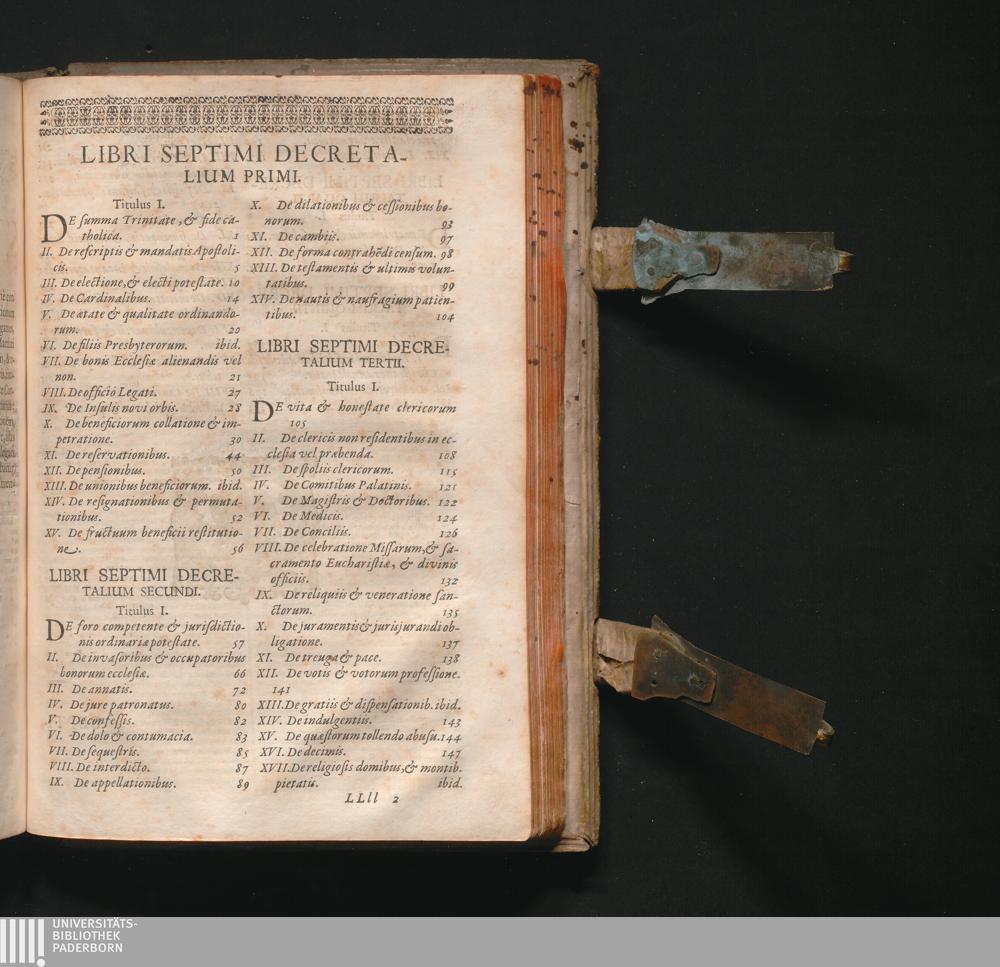 LIBRI SEPTIMI DECRETA-
LIUM PRIMI.
Titulus I.
DE ſumma Trinitate, & fide ca-
tholica. 1
II. De reſcriptis & mandatis Apoſtoli-
cis. 5
III. De electione, & electi poteſtate. 10
IV. De Cardinalibus. 14
V. De ætate & qualitate ordinando-
rum. 20
VI. De filiis Presbyterorum. ibid.
VII. De bonis Eccleſiæ alienandis vel
non. 21
VIII. De officio Legati. 27
IX. De Inſulis novi orbis. 28
X. De beneficiorum collatione & im-
petratione. 30
XI. De reſervationibus. 44
XII. De penſionibus. 50
XIII. De unionibus beneficiorum. ibid.
XIV. De reſignationibus & permuta-
tionibus. 52
XV. De fructuum beneficii reſtitutio-
ne. 56
LIBRI SEPTIMI DECRE-
TALIUM SECUNDI.
Titulus I.
DE foro competente & juriſdictio-
nis ordinariæ poteſtate. 57
II. De invaſoribus & occupatoribus
bonorum eccleſiæ. 66
III. De annatis. 72
IV. De jure patronatus. 80
V. De confeſſis. 82
VI. De dolo & contumacia. 83
VII. De ſequeſtris. 85
VIII. De interdicto. 87
IX. De appellationibus. 89
X. De dilationibus & ceſſionibus bo-
norum. 93
XI. De cambiis. 97
XII. De forma contrahēdi cenſum. 98
XIII. De teſtamentis & ultimis volun-
tatibus. 99
XIV. De nautis & naufragium patien-
tibus. 104
LIBRI SEPTIMI DECRE-
TALIUM TERTII.
Titulus I.
DE vita & honeſtate clericorum
105
II. De clericis non reſidentibus in ec-
cleſia vel præbenda. 108
III. De ſpoliis clericorum. 115
IV. De Comitibus Palatinis. 121
V. De Magiſtris & Doctoribus. 122
VI. De Medicis. 124
VII. De Conciliis. 126
VIII. De celebratione Miſſarum, & ſa-
cramento Euchariſtiæ, & divinis
officiis. 132
IX. De reliquiis & veneratione ſan-
ctorum. 135
X. De juramentis & jurisjurandi ob-
ligatione. 137
XI. De treuga & pace. 138
XII. De votis & votorum profeſſione.
141
XIII. De gratiis & diſpenſationib. ibid.
XIV. De indulgentiis. 143
XV. De quæſtorum tollendo abuſu. 144
XVI. De decimis. 147
XVII. De religioſis domibus, & montib.
pietatis. ibid.
LLll 2
UNIVERSITÄTS-
BIBLIOTHEK
PADERBORN